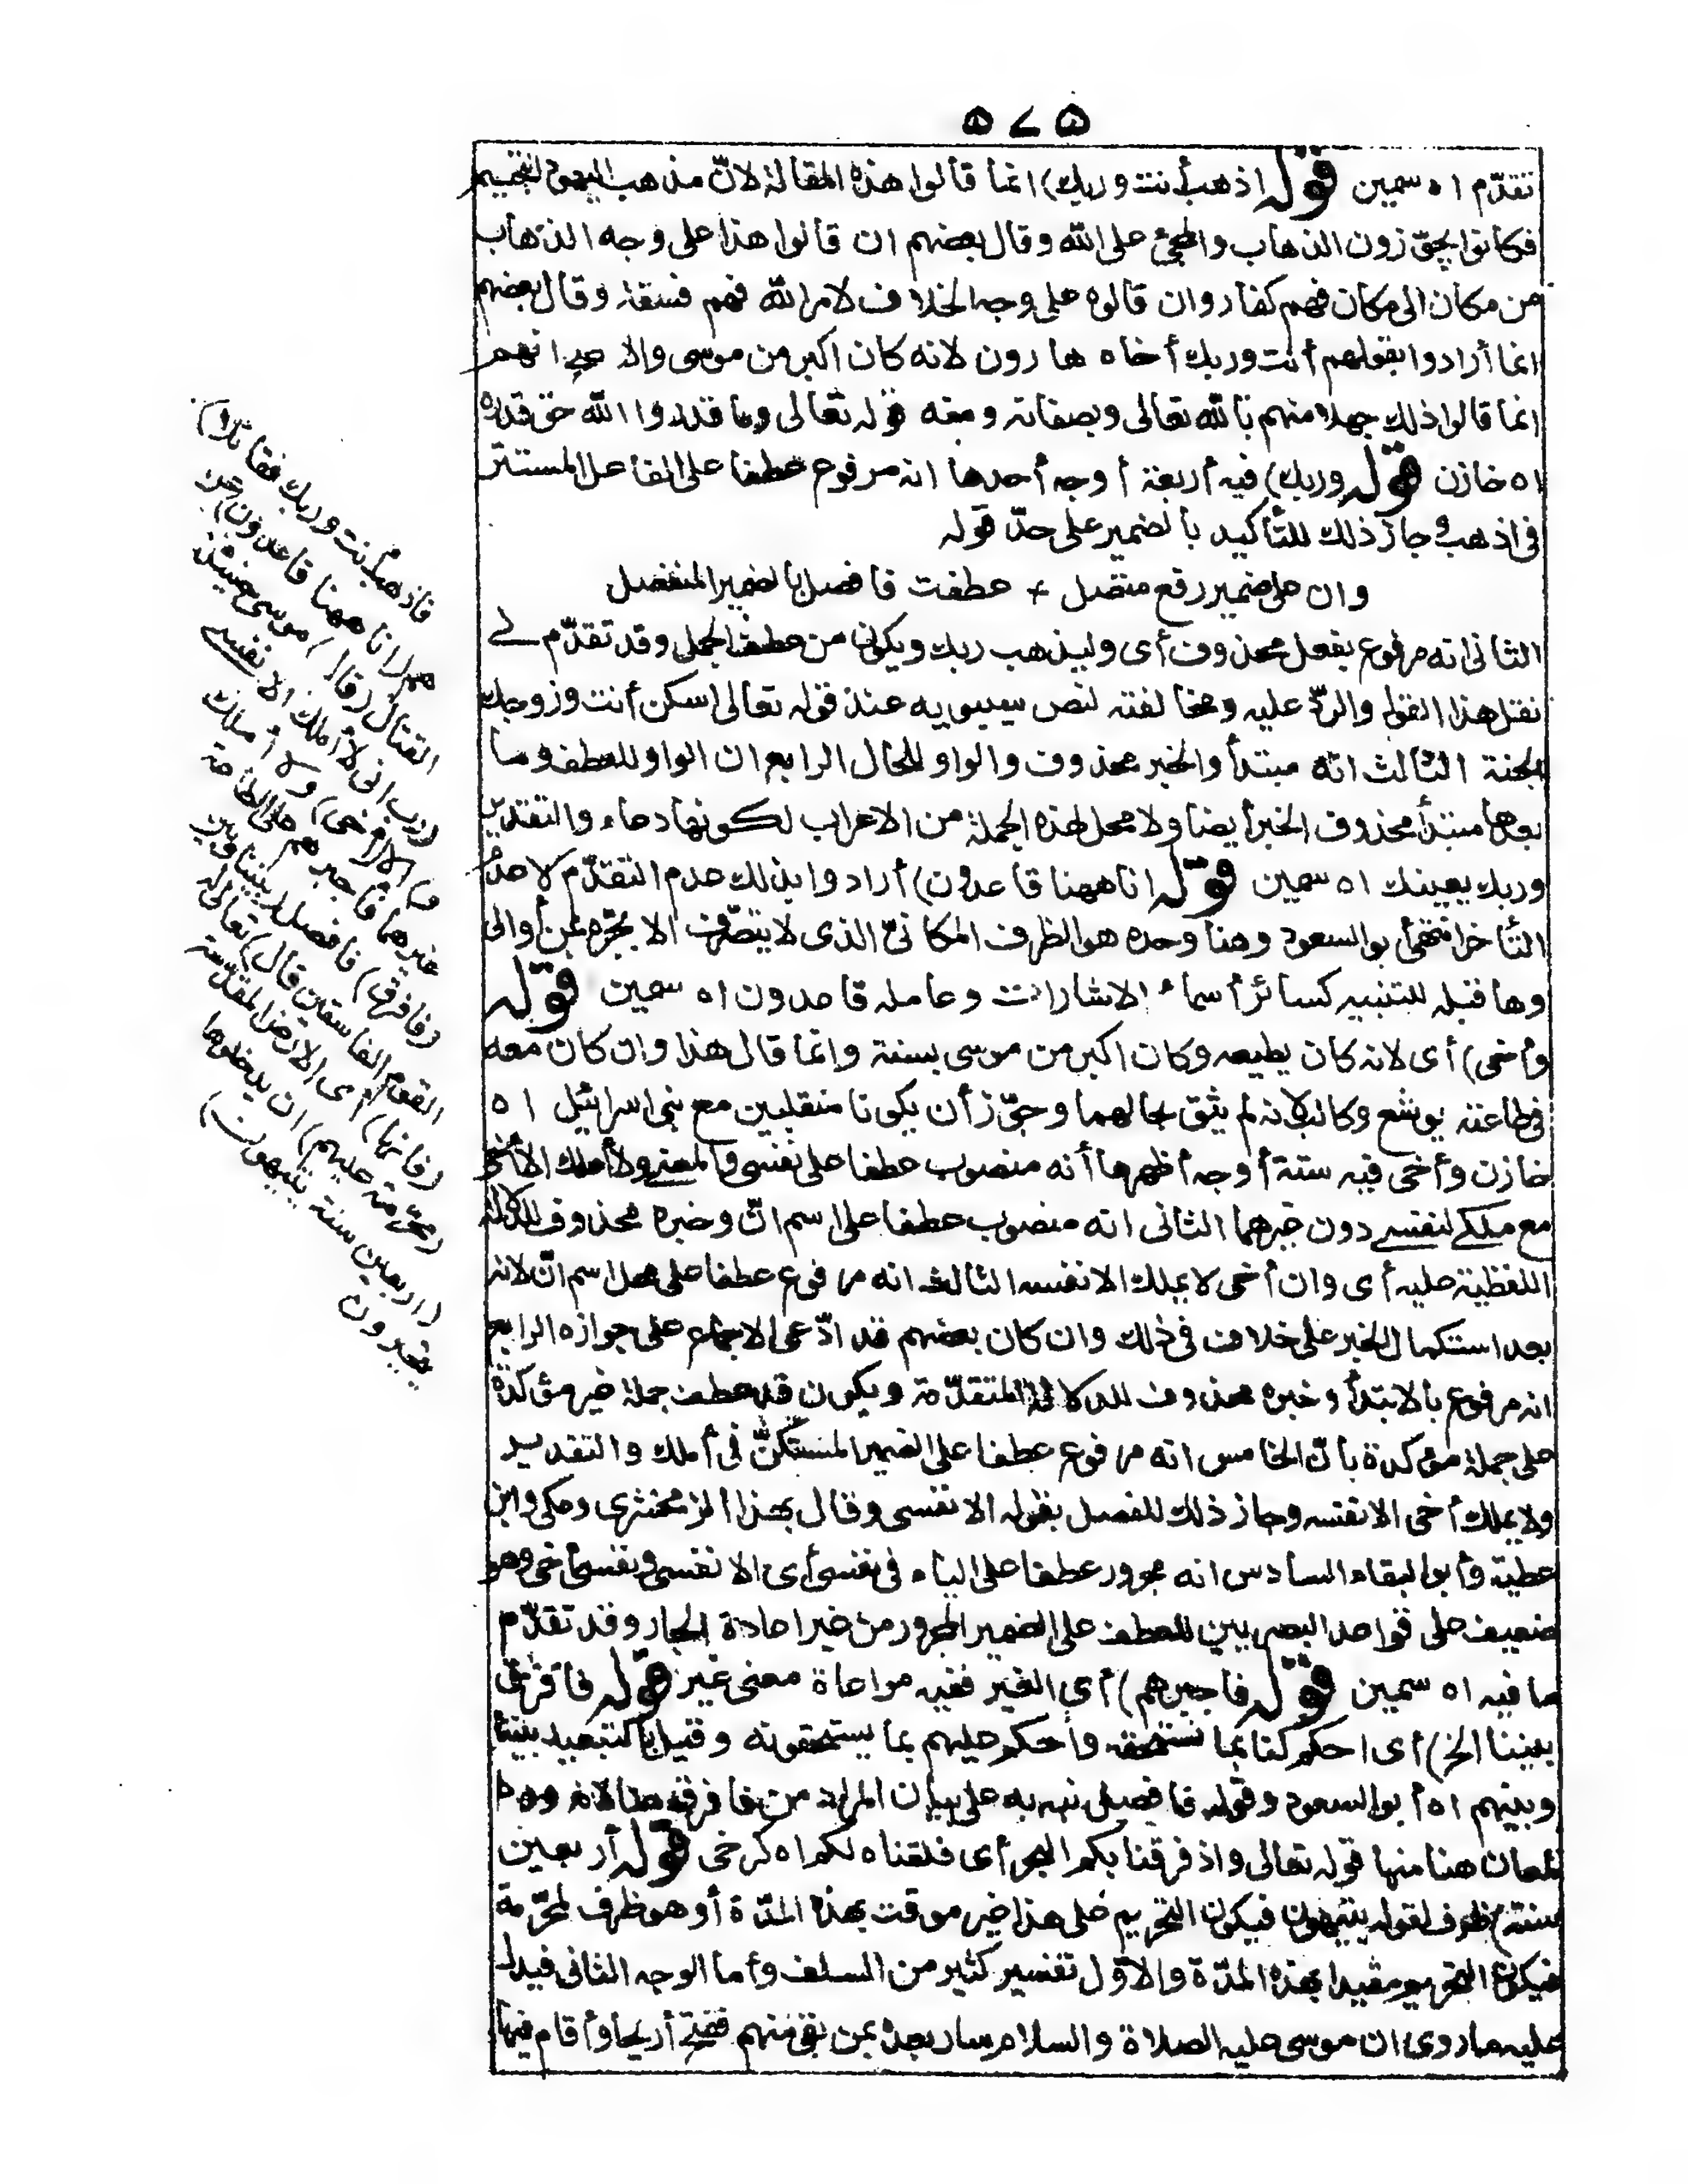 ٥٧٥
تقدّم اه سمين قوله اذهب أنت وربك) انما قالوا هذه المقالة لانّ مذهب اليهود التجسيم
فكانوا يجوّزون الذهاب والمجئ على الله وقال بعضهم ان قالوا هذا على وجه الذهاب
من مكان الى مكان فهم كفار وان قالوه على وجه الخلاف لامر الله فهم فسقة وقال بعضهم
انما أرادوا بقولهم أنت وربك أخاه هارون لانه كان اكبر من موسى والاصح انهم
انما قالوا ذلك جهلا منهم بالله تعالى وبصفاته ومنه قوله تعالى وما قدروا الله حق قدره
اه خازن قوله وربك) فيه أربعة أوجه أحدها انه مرفوع عطفا على الفاعل المستتر
فى اذهب وجاز ذلك للتأكيد بالضمير على حدّ قوله
وان على ضمير رفع متصل + عطفت فافصل بالضمير المنفصل
الثانى انه مرفوع بفعل محذوف أى وليذهب ربك ويكون من عطف الجمل وقد تقدّم لى
نقل هذا القول والردّ عليه ومخالفته لنص سيبويه عند قوله تعالى اسكن أنت وزوجك
الجنة الثالث انه مبتدأ والخبر محذوف والواو للحال الرابع ان الواو للعطف وما
بعدها مبتدأ محذوف الخبر أيضا ولا محل لهذه الجملة من الاعراب لكونها دعاء والتقدير
وربك يعينك اه سمين قوله انا ههنا قاعدون) أرادوا بذلك عدم التقدّم لا عدم
التأخر انتهى أبو السعود وهنا وحده هو الظرف المكانىّ الذى لا يتصرّف الا بجرّه بمن أو الى
وها قبله للتنبيه كسائر أسماء الاشارات وعامله قاعدون اه سمين قوله
وأخى) أى لانه كان يطيعه وكان اكبر من موسى بسنة وانما قال هذا وان كان معه
فى طاعته يوشع وكالب لانه لم يثق بحالهما وجوّز أن يكونا منقلبين مع بنى اسرائيل اه
خازن وأخى فيه ستة أوجه أظهرها أنه منصوب عطفا على نفسى والمعنى ولا أملك الا أخى
مع ملكى لنفسى دون غيرهما الثانى انه منصوب عطفا على اسم انّ وخبره محذوف للدلالة
اللفظية عليه أى وان أخى لا يملك الا نفسه الثالث انه مرفوع عطفا على محل اسم انّ لانه
بعد استكمال الخبر على خلاف فى ذلك وان كان بعضهم قد ادّعى الاجماع على جوازه الرابع
انه مرفوع بالابتدأ وخبره محذوف للدلالة المتقدّمة ويكون قد عطف جملة غير مؤكدة
على جملة مؤكدة بانّ الخامس انه مرفوع عطفا على الضمير المستكنّ فى أملك والتقدير
ولا يملك أخى الا نفسه وجاز ذلك للفصل بقوله الا نفسى وقال بهذا الزمخشرى ومكى وابن
عطية وأبو البقاء السادس انه مجرور عطفا على الياء فى نفسى أى الا نفسى ونفس أخى وهو
ضعيف على قواعد البصريين للعطف على الضمير المجرور من غير اعادة الجار وقد تقدّم
ما فيه اه سمين قوله فاجبرهم) أى الغير ففيه مراعاة معنى غير قوله فافرق
بيننا الخ) أى احكم لنا بما نستحقه واحكم عليهم بما يستحقونه وقيل بالتبعيد بيننا
وبينهم اه أبو السعود وقوله فافصل نبه به على بيان المراد من فافرق هنا لانه ورد
لمعان هنا منها قوله تعالى واذ فرقنا بكم البحر أى فلقناه لكم اه كرخى قوله أربعين
سنة) ظرف لقوله يتيهون فيكون التحريم على هذا غير موقت بهذه المدّة أو هو ظرف لمحرّمة
فيكون التحريم مقيدا بهذه المدّة والاوّل تفسير كثير من السلف وأما الوجه الثانى فيدل
عليه ما روى ان موسى عليه الصلاة والسلام سار بعده بمن بقى منهم ففتح أريحا وأقام فيها
فاذهب أنت وربك فقاتلا)
هم (انا ههنا قاعدون) عن
القتال (قال) موسى حينئذ
(رب انى لا أملك الا نفسى
و) الا (أخى) ولا أملك
غيرهما فأجبرهم على الطاعة
(فافرق) فافصل (بيننا وبين
القوم الفاسقين قال) تعالى له
(فانها) أى الارض المقدّسة
(محرّمة عليهم) ان يدخلوها
(أربعين سنة يتيهون)
يتحيرون